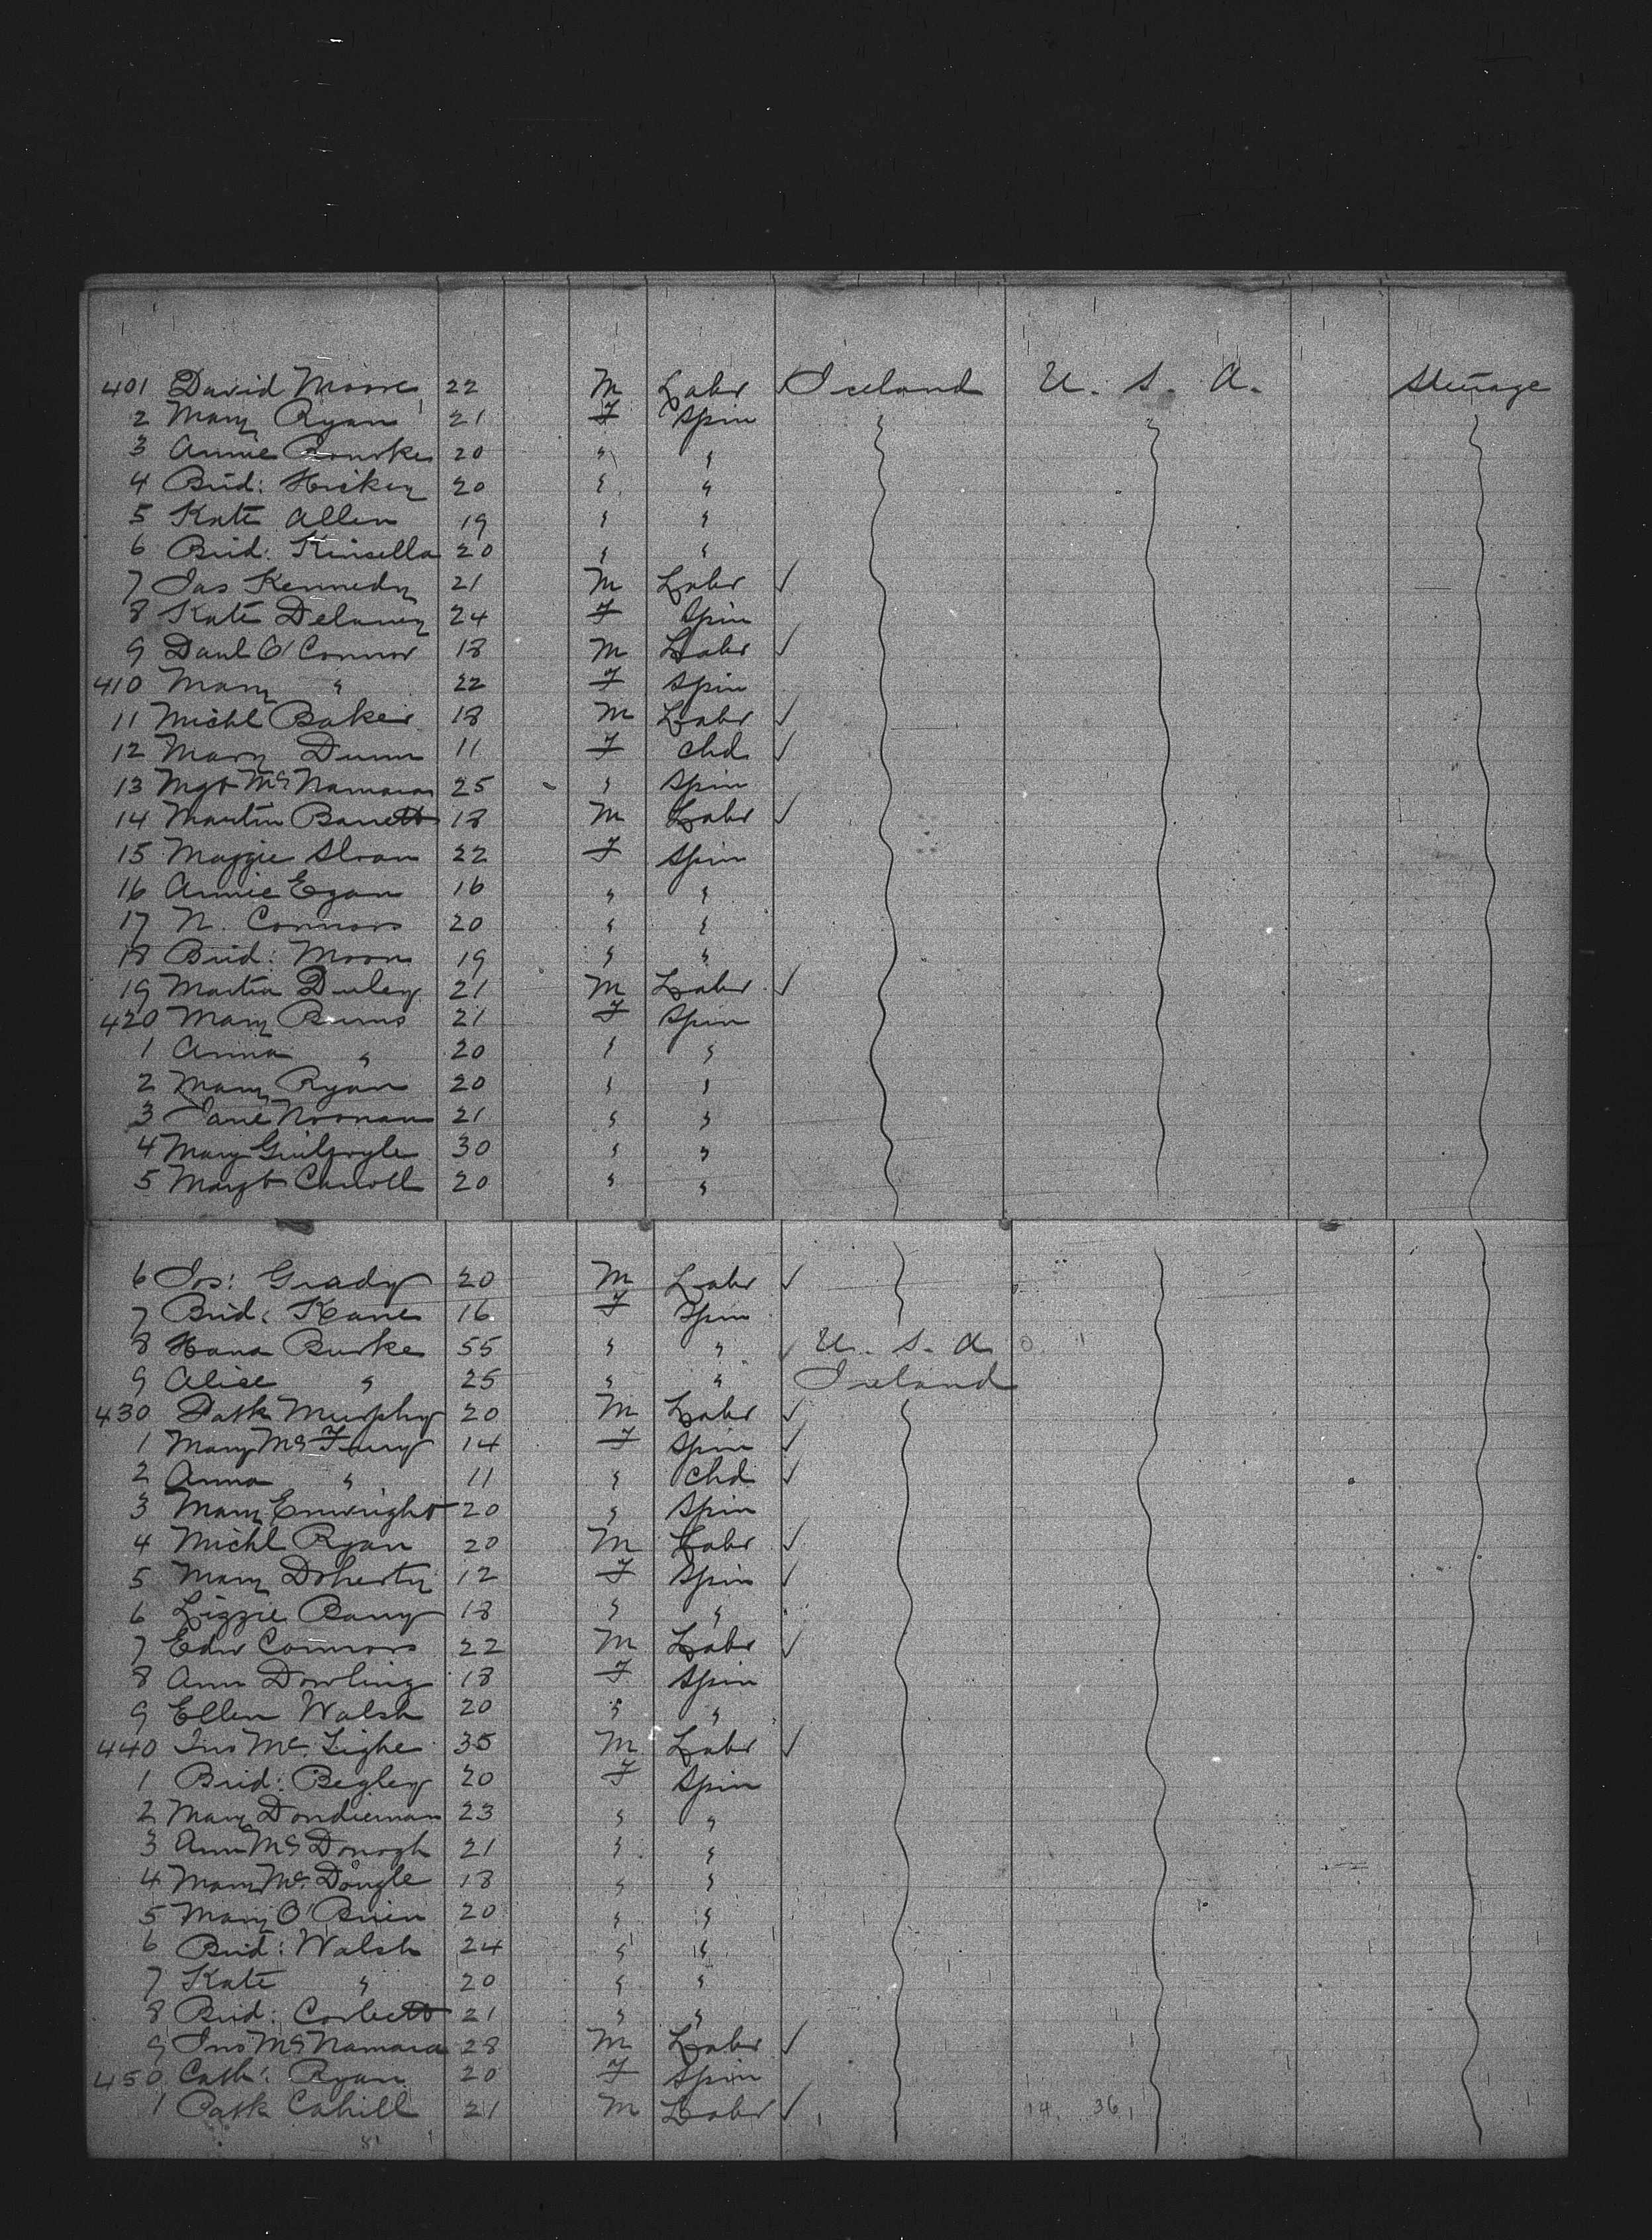 401 David Moore 22 M Labr ✓ Ireland U. S. A. Steerage
2 Mary Ryan 21 F Spin
3 Annie Rourke 20 " "
4 Brid: Hickey 20 " "
5 Kate Allen 19 " "
6 Brid: Kinsella 20 " "
7 Jas Kennedy 21 M Labr ✓
8 Kate Delaney 24 F Spin
9 Danl O'Connor 18 M Labr ✓
410 Mary " 22 F Spin
11 Michl Baker 18 M Labr ✓
12 Mary Dunn 11 F Chd ✓
13 Mgt McNamara 25 " Spin
14 Martin Barrett 18 M Labr ✓
15 Maggie Sloan 22 F Spin
16 Annie Egan 16 " "
17 N. Connors 20 " "
18 Brid: Moore 19 " "
19 Martin 21 M Labr ✓
420 Mary Burns 21 F Spin
1 Anna " 20 " "
2 Mary Ryan 20 " "
3 Jane Noonan 21 " "
4 Mary Guilfoyle 30 " "
5 Margt Carroll 20 " "
6 Jos: Grady 20 M Labr ✓
7 Brid: Kane 16 F Spin
8 Hana Burke 55 " " ✓ U. S. A
9 Alice " 25 " " Ireland
430 Patk Murphy 20 M Labr ✓
1 Mary 14 F Spin ✓
2 Anna " 11 " Chd ✓
3 Mary Enwright 20 " Spin
4 Michl Ryan 20 M Labr ✓
5 Mary Doherty 12 F Spin ✓
6 Lizzie Barry 18 " "
7 Edw Connors 22 M Labr ✓
8 Ann Dowling 18 F Spin
9 Ellen Walsh 20 " "
440 Jno McTighe 35 M Labr ✓
1 Brid: Begley 20 F Spin
2 Mary 23 " "
3 Ann McDonogh 21 " "
4 Mary 18 " "
5 Mary O'Brien 20 " "
6 Brid: Walsh 24 " "
7 Kate " 20 " "
8 Brid: Corbett 21 " "
9 Jno McNamara 28 M Labr ✓
450 Cath: Ryan 20 F Spin
1 Patk Cahill 21 M Labr ✓ 14. 36